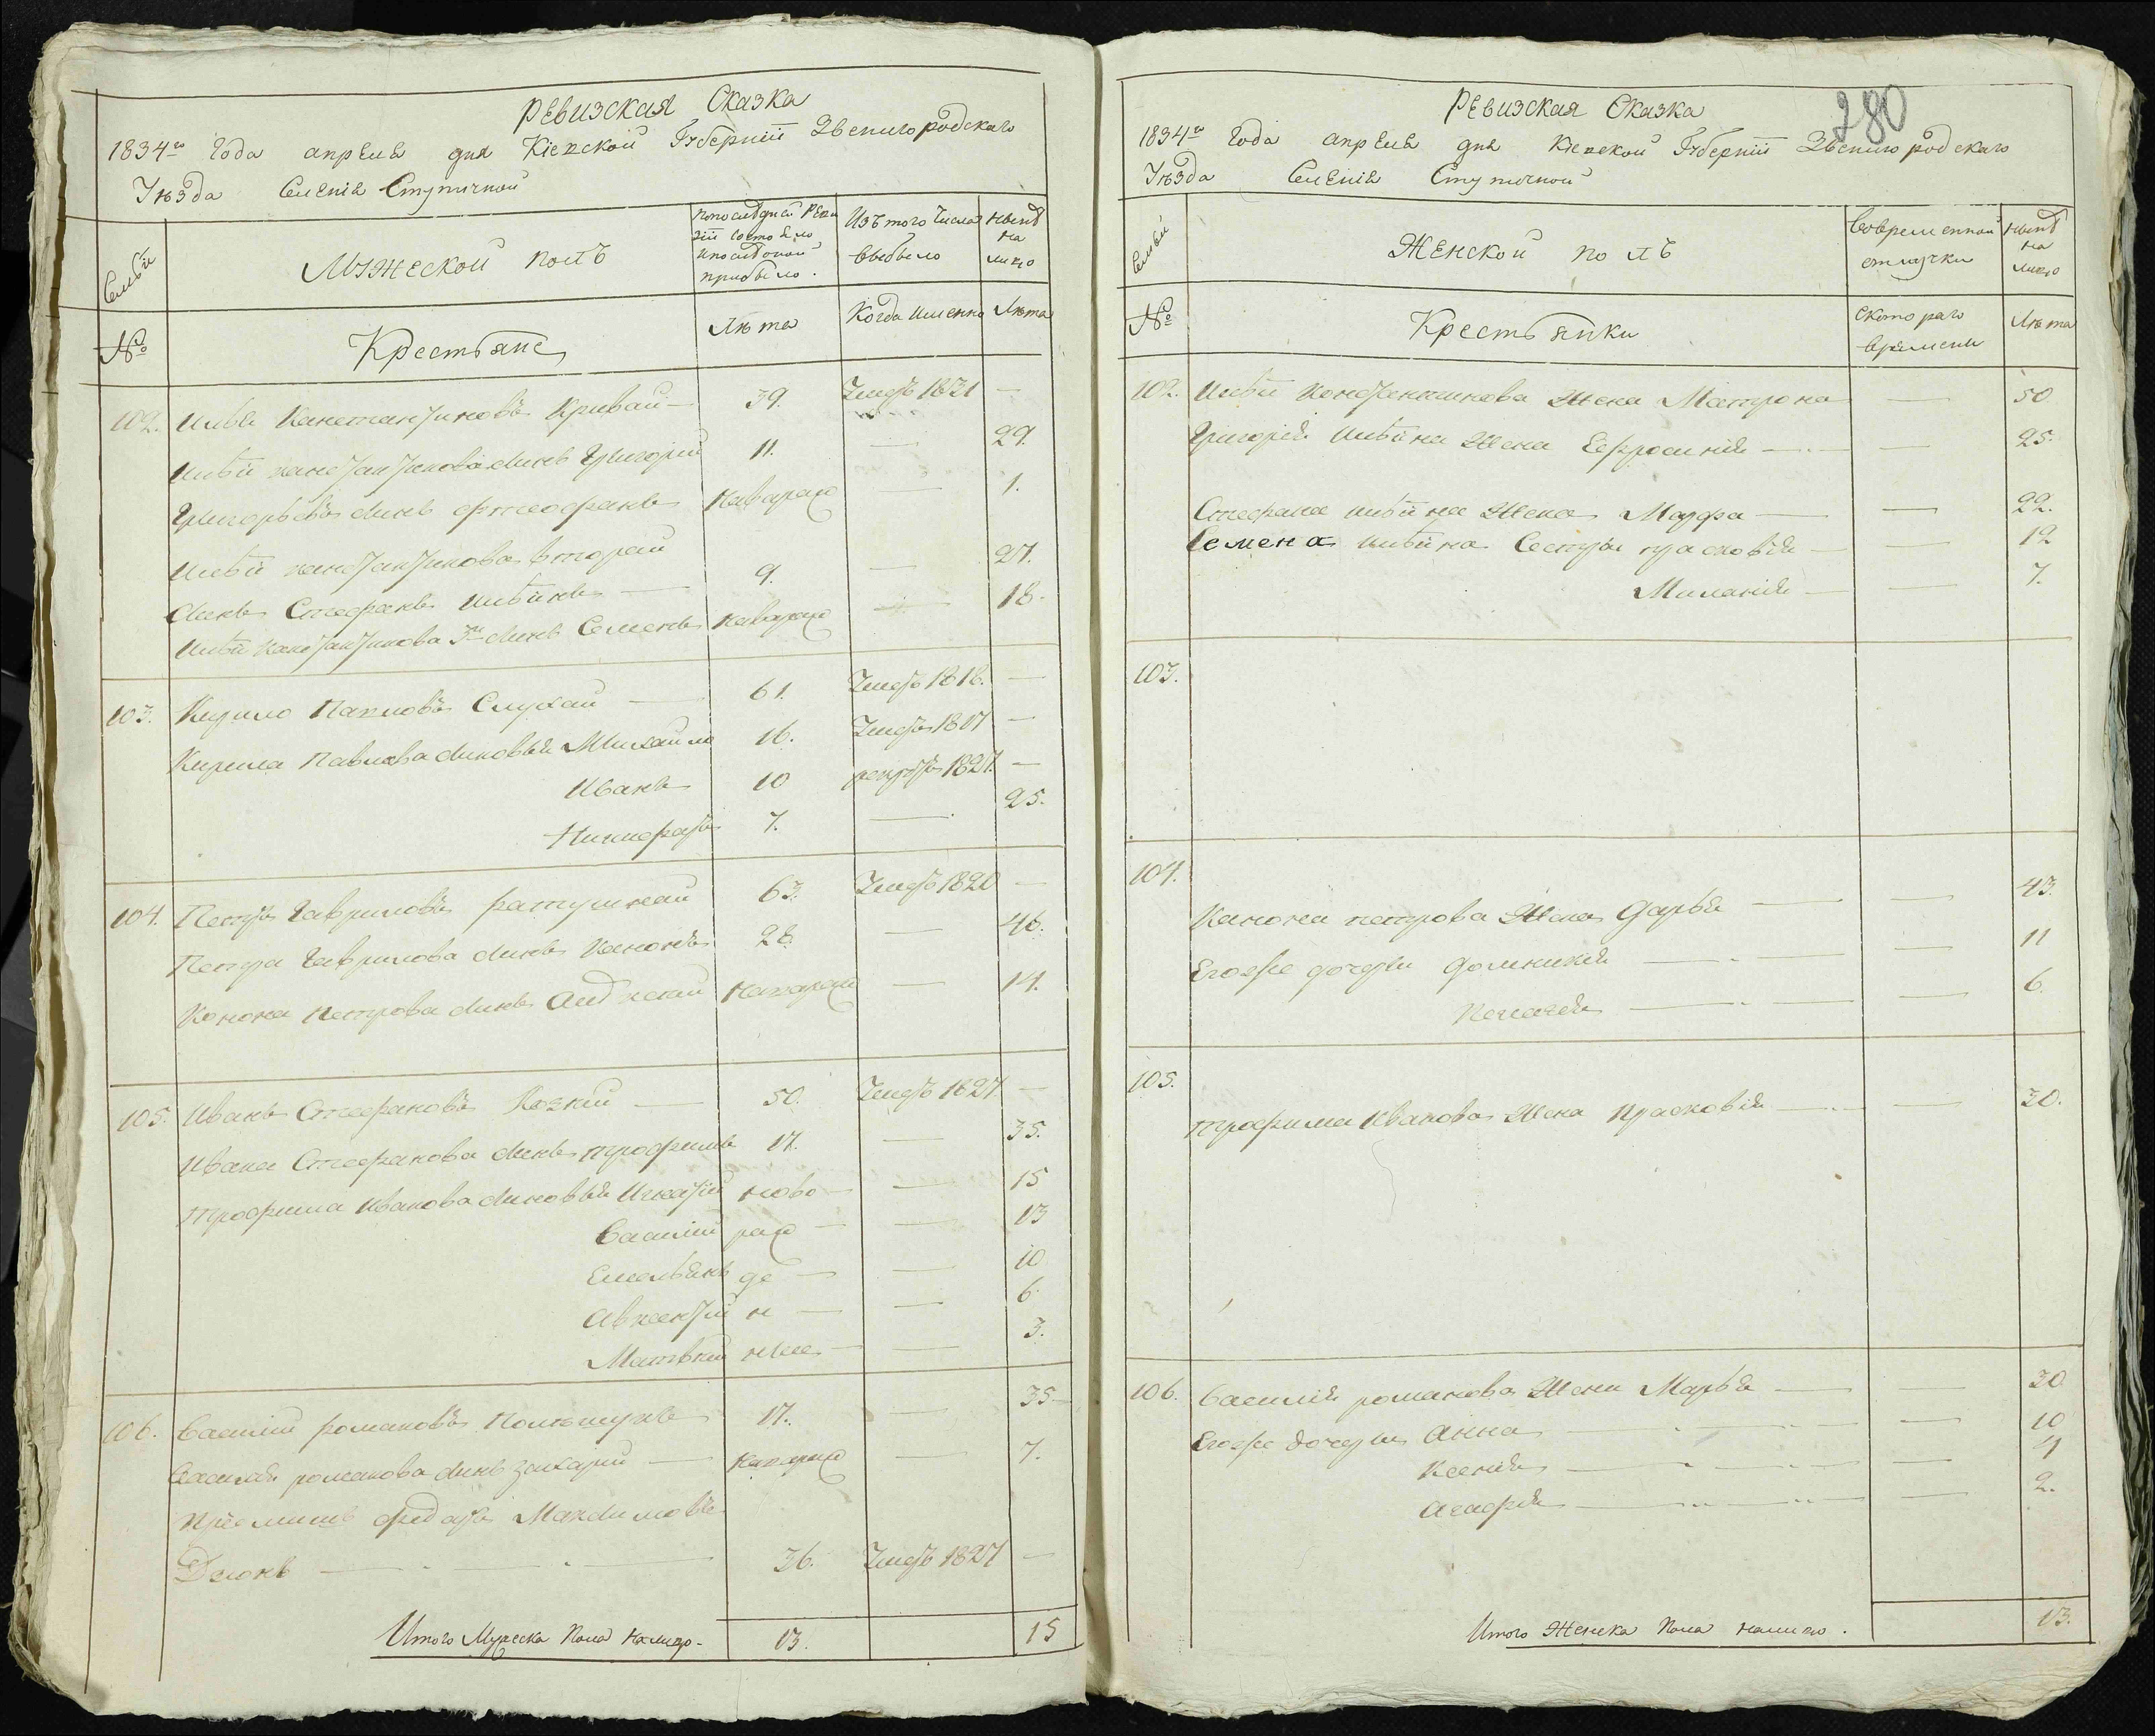 Ревизская Сказка
1834го Года апреля дня Кіевской Губерніи Звенигородскаго
Уѣзда Селенія Ступичной
Семьи
Мужеской полъ
По последней Реви
зіи состояло
и после оной
прибыло.
Изъ того Числа
выбыло
Ныне
на
лицо
№
Крестьяне
Лѣта
Когда Именно
Лѣта
102. Илья Константиновъ Кривай — 39. Умеръ 1831 —
Ильи Константинова Синъ Григорій 11. — 29.
Григорьевъ Синъ Фтеофанъ Наварож — 1.
Ильи Константинова вторай
Синъ Стефанъ Ильинъ — 9. — 27.
Ильи Константинова 3й Синъ Семенъ Наварож — 18.
103. Кирило Павловъ Слухай — 61. Умеръ 1818. —
Кирила Павлова Синовья Михайло 16. Умеръ 1817 —
Иванъ 10 рекрутъ 1827. —
Никифоръ 7. — 25.
104. Петръ Гавриловъ Ратушнай 63. Умеръ 1820 —
Петра Гаврилова Синъ Кононъ 28. — 46.
Конона Петрова Синъ Наварож — 14.
105. Иванъ Стефановъ — 50. Умеръ 1827. —
Ивана Стефанова Синъ Трофимъ 17. — 35.
Трофима Иванова Синовья Игнатій ново — — 15
Василій рож — — 13
Емельянъ де — — 10
Авксентій н — — 6.
Матвей ные — — 3.
106. Василій Романовъ Полѣщукъ 17. — 35 —
Василія Романова Синъ Захарій — Наварож — 7.
Пріемишъ Федоръ Максимовъ
— 36. Умеръ 1827 —
Итого Мужеска Пола Налицо. 13. 15
280
Ревизская Сказка
1834го Года апреля дня Кіевской Губерніи Звенигородскаго
Уѣзда Селенія Ступичной
Семьи
Женской полъ
Вовременной
отлучки
Ныне
на
лицо
№
Крестьянки
Скотораго
времени
Лѣта
102. Ильи Константинова Жена Матрона — 50
Григорія Ильина Жена Ефросинія — — 25.
Стефана Ильина Жена Марфа — — 22.
Семена Ильина Сестры Прасковія — — 12
Миланія — — 7.
103.
104.
Конона Петрова Жена Дарья — — 43.
Егоже дочери Домникія — — 11
Пелагея — — 6.
105.
Трофима Иванова Жена Прасковія — — 30.
106. Василія Романова Жена Марья — — 30
Егоже дочери Анна — — 10
Ксенія — —
Агафія — — 2.
Итого Женска Пола налицо. 13.